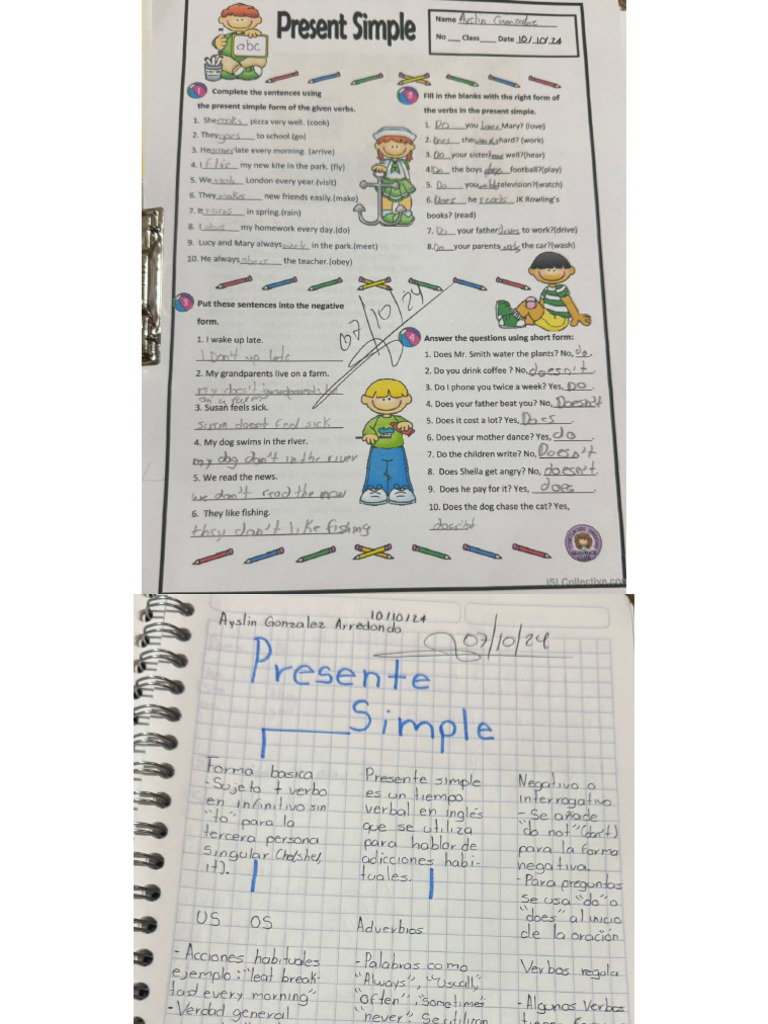 Present Simple
abc
Name Ayslin Gonzalez
No ___ Class ___ Date 10/10/24
1 Complete the sentences using
the present simple form of the given verbs.
1. She cooks pizza very well. (cook)
2. They goes to school.(go)
3. He late every morning. (arrive)
4. I flie my new kite in the park. (fly)
5. We London every year.(visit)
6. They makes new friends easily.(make)
7. It rains in spring.(rain)
8. I does my homework every day.(do)
9. Lucy and Mary always in the park.(meet)
10. He always the teacher.(obey)
2 Fill in the blanks with the right form of
the verbs in the present simple.
1. Do you loves Mary? (love)
2. Does she works hard? (work)
3. Do your sister well?(hear)
4. Do the boys football?(play)
5. Do you television?(watch)
6. Does he reads JK Rowling's
books? (read)
7. Do your father drives to work?(drive)
8. Do your parents the car?(wash)
3 Put these sentences into the negative
form.
1. I wake up late.
I Don't up late
2. My grandparents live on a farm.
my does't grandparents
on a farm
3. Susan feels sick.
Susan doesnt feel sick
4. My dog swims in the river.
my dog don't in the river
5. We read the news.
we don't read the new
6. They like fishing.
they don't like fishing
07/10/24
4 Answer the questions using short form:
1. Does Mr. Smith water the plants? No, do.
2. Do you drink coffee ? No, doesn't.
3. Do I phone you twice a week? Yes, DO.
4. Does your father beat you? No, Doesn't
5. Does it cost a lot? Yes, Does.
6. Does your mother dance? Yes, do.
7. Do the children write? No, Doesn't
8. Does Sheila get angry? No, doesn't.
9. Does he pay for it? Yes, does.
10. Does the dog chase the cat? Yes,
iSLCollective.co
10/10/24
Ayslin Gonzalez Arredondo
07/10/24
Presente
Simple
Forma basica
- Sujeto + verbo
en infinitivo sin
"to" para la
tercera persona
singular (he/she/
it).
Presente simple
es un tiempo
verbal en inglés
que se utiliza
para hablar de
adicciones habi-
tuales.
Negativo o
interrogativo
- Se añade
"do not" (don't)
para la forma
negativa.
- Para preguntas
se usa "do" o
"does" al inicio
de la oración
US OS
Adverbios
- Acciones habituales
ejemplo: "I eat break-
fast every morning"
- Verdad general
- Palabras como
"Always", "Uscall",
"often", "sometime
"never". Se utilizan
Verbos regula
- Algunos Verbos